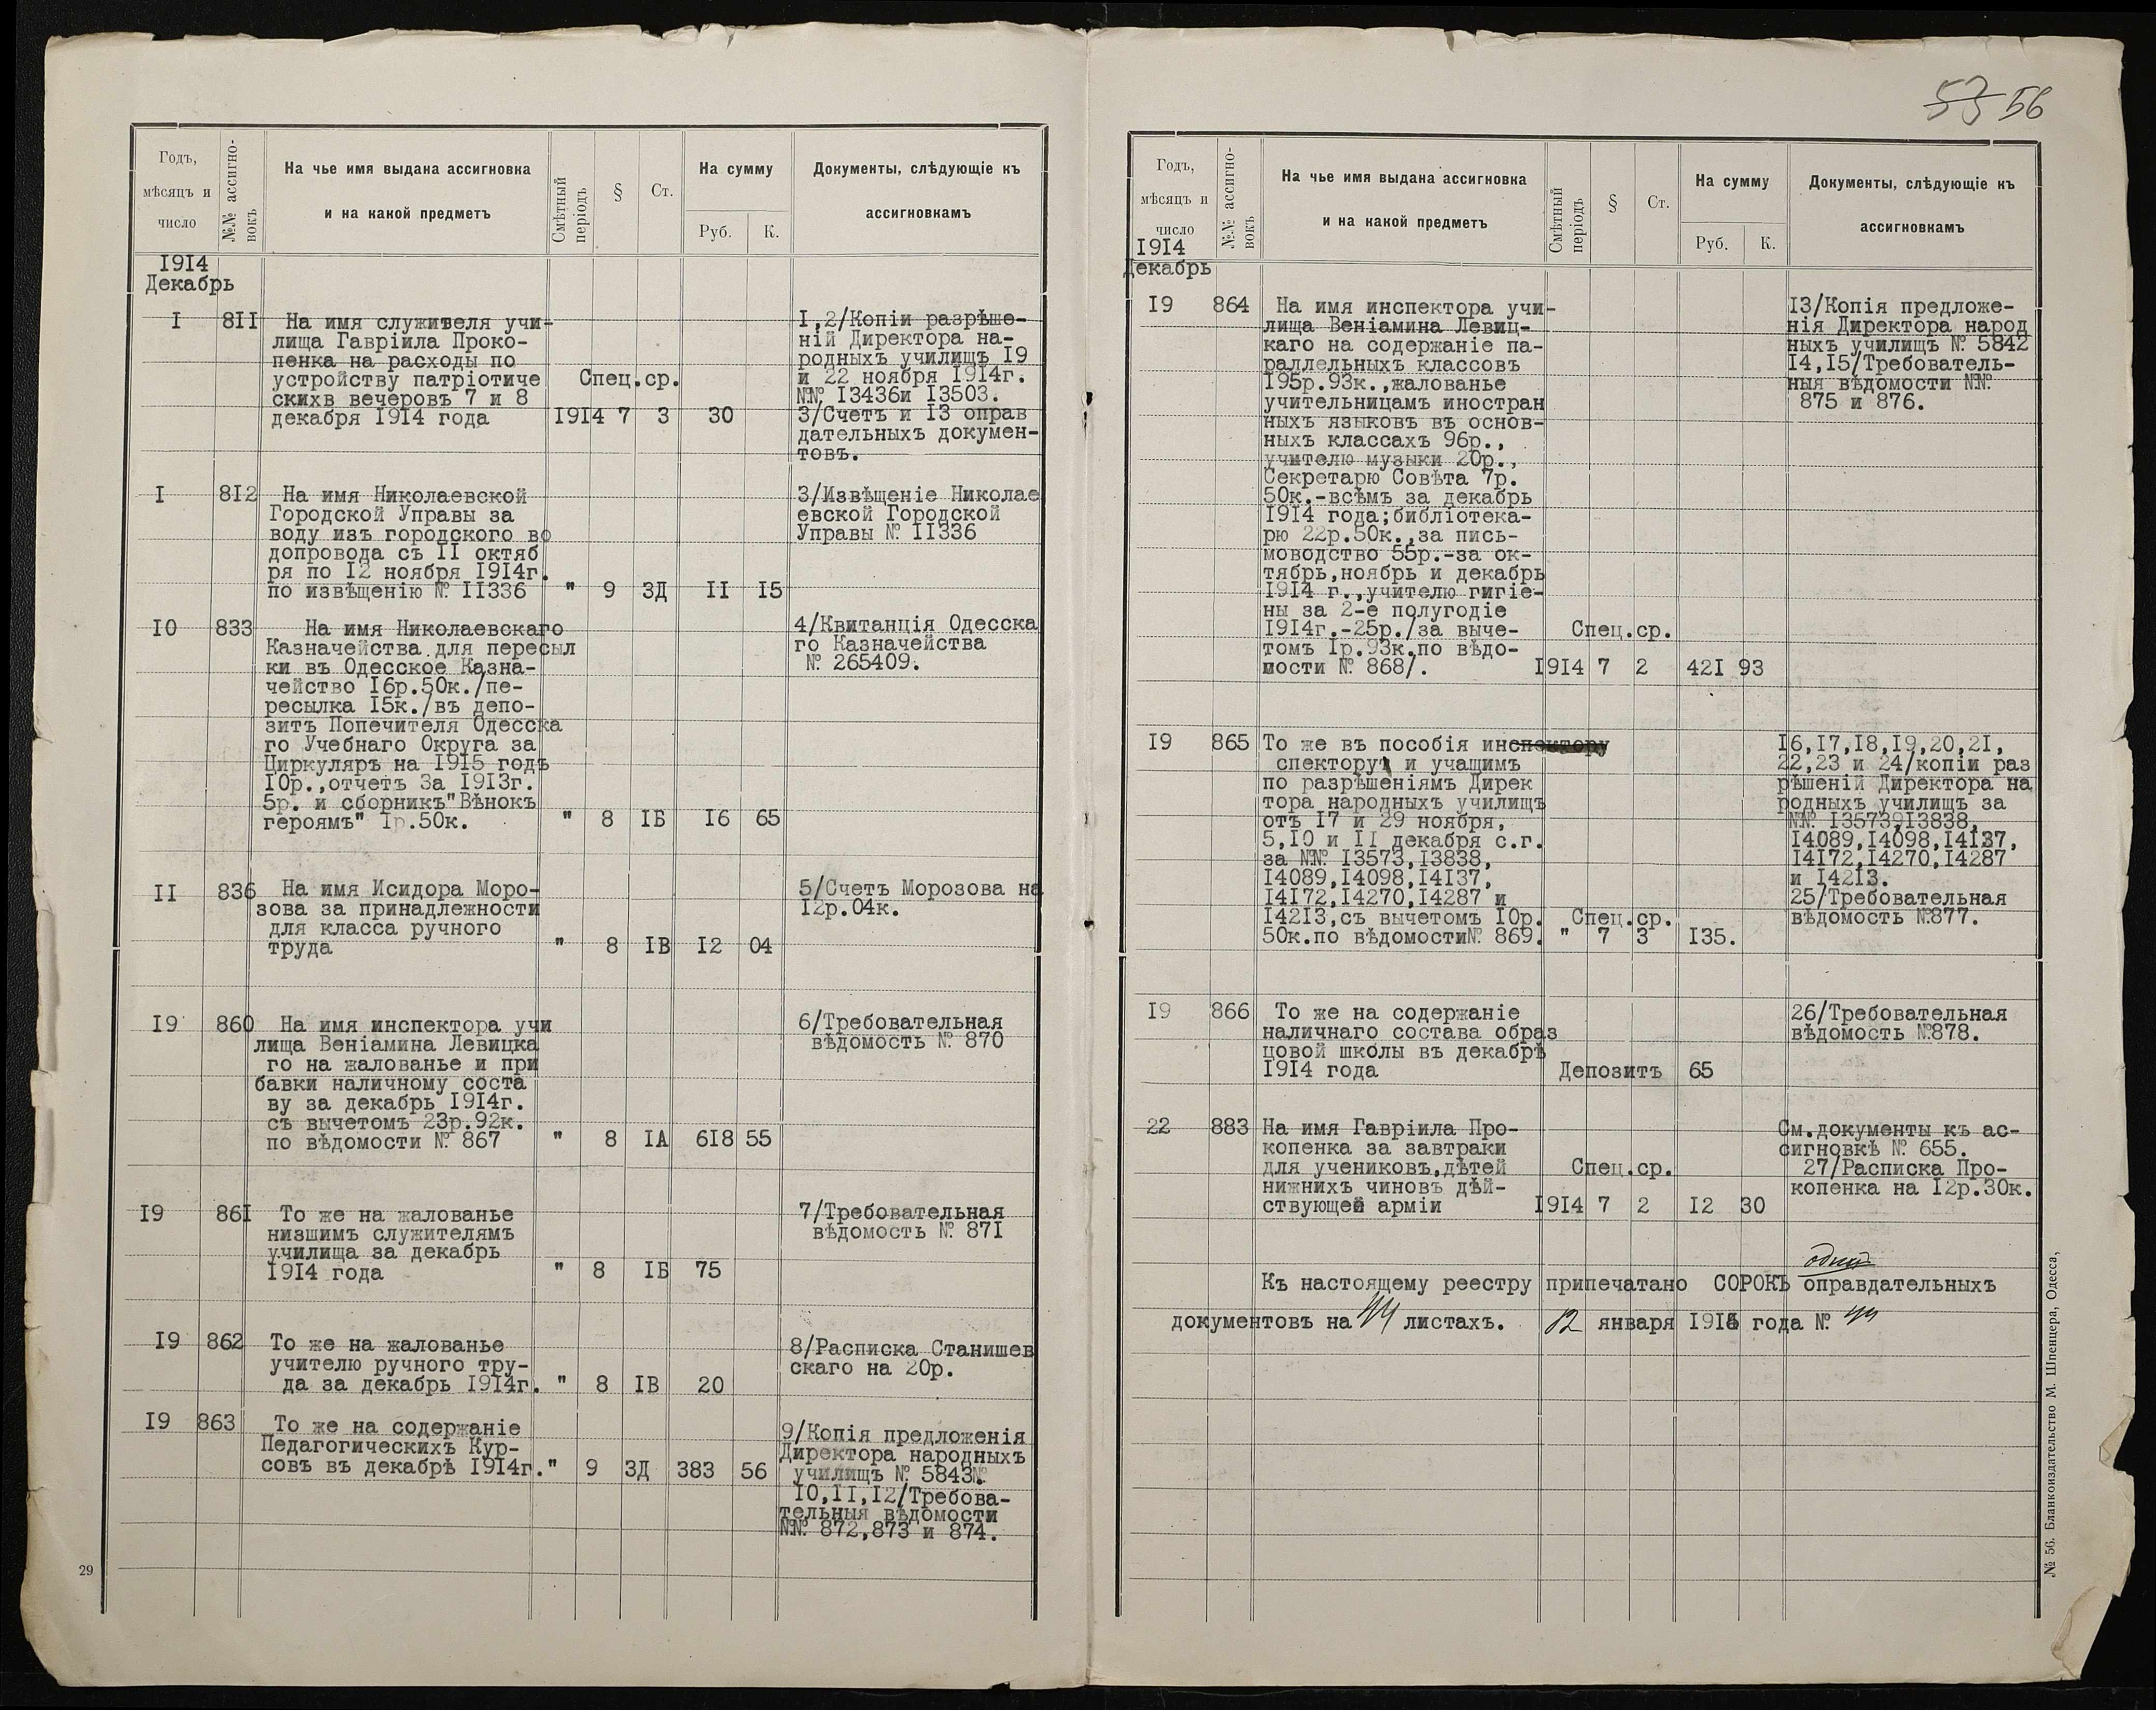 53 56
Годъ,
мѣсяцъ и
число
№№ ассигно-
вокъ
На чье имя выдана ассигновка
и на какой предметъ
Смѣтный
періодъ
§
Ст.
На сумму
Руб.
К.
Документы, слѣдующіе къ
ассигновкамъ
1914
Декабрь
I 8II На имя служителя учи-
лища Гавріила Проко-
пенка на расходы по
устройству патріотиче
скихв вечеровъ 7 и 8
декабря 1914 года
Спец.ср.
1914 7 3 30
I,2/Копіи разрѣше-
ній Директора на-
родныхъ училищъ I9
и 22 ноября I9I4г.
№№ I3436и I3503.
3/Счетъ и I3 оправ
дательныхъ докумен-
товъ.
I 8I2 На имя Николаевской
Городской Управы за
воду изъ городского во
допровода съ II октяб
ря по I2 ноября I9I4г.
по извѣщенію № II336 " 9 3Д II I5
3/Извѣщеніе Николае
евской Городской
Управы № II336
I0 833 На имя Николаевскаго
Казначейства для пересыл
ки въ Одесское Казна-
чейство I6р.50к./пе-
ресылка I5к./въ депо-
зитъ Попечителя Одесска
го Учебнаго Округа за
Циркуляръ на I9I5 годъ
I0р.,отчетъ За I9I3г.
5р. и сборникъ"Вѣнокъ
героямъ" Iр.50к. " 8 IБ I6 65
4/Квитанція Одесска
го Казначейства
№ 265409.
II 836 На имя Исидора Моро-
зова за принадлежности
для класса ручного
труда " 8 IВ I2 04
5/Счетъ Морозова на
I2р.04к.
I9 860 На имя инспектора учи
лища Веніамина Левицка
го на жалованье и при
бавки наличному соста
ву за декабрь I9I4г.
съ вычетомъ 23р.92к.
по вѣдомости № 867 " 8 IА 6I8 55
6/Требовательная
вѣдомость № 870
I9 86I То же на жалованье
низшимъ служителямъ
училища за декабрь
I9I4 года " 8 IБ 75
7/Требовательная
вѣдомость № 87I
I9 862 То же на жалованье
учителю ручного тру-
да за декабрь I9I4г. " 8 IВ 20
8/Расписка Станишев
скаго на 20р.
I9 863 То же на содержаніе
Педагогическихъ Кур-
совъ въ декабрѣ I9I4г." 9 3Д 383 56
9/Копія предложенія
Директора народныхъ
училищъ № 5843.
I0,II,I2/Требова-
тельныя вѣдомости
№№ 872,873 и 874.
29
Годъ,
мѣсяцъ и
число
№№ ассигно-
вокъ
На чье имя выдана ассигновка
и на какой предметъ
Смѣтный
періодъ
§
Ст.
На сумму
Руб.
К.
Документы, слѣдующіе къ
ассигновкамъ
I9I4
Декабрь
I9 864 На имя инспектора учи-
лища Веніамина Левиц-
каго на содержаніе па-
раллельныхъ классовъ
I95р.93к.,жалованье
учительницамъ иностран
ныхъ языковъ въ основ-
ныхъ классахъ 96р.,
учителю музыки 20р.,
Секретарю Совѣта 7р.
50к.-всѣмъ за декабрь
I9I4 года;библіотека-
рю 22р.50к.,за пись-
моводство 55р.-за ок-
тябрь,ноябрь и декабрь
I9I4 г.,учителю гигіе-
ны за 2-е полугодіе
I9I4г.-25р./за выче-
томъ Iр.93к.по вѣдо-
мости № 868/.
Спец.ср.
I9I4 7 2 42I 93
I3/Копія предложе-
нія Директора народ
ныхъ училищъ № 5842
I4,I5/Требователь-
ныя вѣдомости №№
875 и 876.
I9 865 То же въ пособія инспектору
спектору и учащимъ
по разрѣшеніямъ Дирек
тора народныхъ училищъ
отъ I7 и 29 ноября,
5,I0 и II декабря с.г.
за №№ I3573,I3838,
I4089,I4098,I4I37,
I4I72,I4270,I4287 и
I42I3,съ вычетомъ I0р.
50к.по вѣдомости№ 869.
Спец.ср.
" 7 3 I35.
I6,I7,I8,I9,20,2I,
22,23 и 24/копіи раз
рѣшеній Директора на
родныхъ училищъ за
№№ I3573,I3838,
I4089,I4098,I4I37,
I4I72,I4270,I4287
и I42I3.
25/Требовательная
вѣдомость №877.
I9 866 То же на содержаніе
наличнаго состава образ
цовой школы въ декабрѣ
I9I4 года Депозитъ 65
26/Требовательная
вѣдомость №878.
22 883 На имя Гавріила Про-
копенка за завтраки
для учениковъ,дѣтей
нижнихъ чиновъ дѣй-
ствующей арміи
Спец.ср.
I9I4 7 2 I2 30
См.документы къ ас-
сигновкѣ № 655.
27/Расписка Про-
копенка на I2р.30к.
одинъ
Къ настоящему реестру припечатано СОРОКЪ оправдательныхъ
документовъ на 44 листахъ. 12 января I9I5 года № 44
№ 56. Бланкоиздательство М. Шпенцера, Одесса,